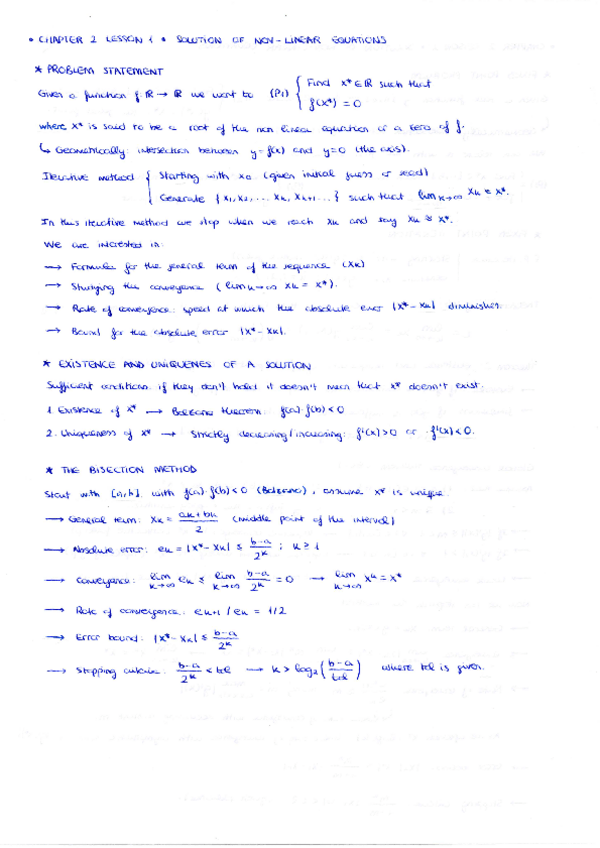 • CHAPTER 2 LESSON 1 • SOLUTION OF NON-LINEAR EQUATIONS
* PROBLEM STATEMENT
Given a function f: ℝ → ℝ we want to (P1) { Find x* ∈ ℝ such that
f(x*) = 0
where x* is said to be a root of the non linear equation or a zero of f.
↳ Geometrically: intersection between y = f(x) and y=0 (the axis).
Iterative method { Starting with x0 (given initial guess or seed)
Generate {x1, x2, ... xk, xk+1 ...} such that lim k→∞ xk = x*.
In this iterative method we stop when we reach xk and say xk ≈ x*.
We are interested in:
→ Formulas for the general term of the sequence (xk)
→ Studying the convergence (lim k→∞ xk = x*).
→ Rate of convergence: speed at which the absolute error |x* - xk| diminishes.
→ Bound for the absolute error |x* - xk|.
* EXISTENCE AND UNIQUENES OF A SOLUTION
Sufficient conditions: if they don't hold it doesn't mean that x* doesn't exist.
1. Existence of x* → Bolzano theorem: f(a)·f(b) < 0
2. Uniqueness of x* → Strictly decreasing/increasing: f'(x) > 0 or f'(x) < 0.
* THE BISECTION METHOD
Start with [a,b] with f(a)·f(b) < 0 (Bolzano), assume x* is unique.
→ General term: xk = (ak + bk)/2 (middle point of the interval)
→ Absolute error: ek = |x* - xk| ≤ (b-a)/2^k ; k ≥ 1
→ Convergence: lim k→∞ ek ≤ lim k→∞ (b-a)/2^k = 0 → lim k→∞ xk = x*
→ Rate of convergence: ek+1 / ek = 1/2
→ Error bound: |x* - xk| ≤ (b-a)/2^k
→ Stopping criteria: (b-a)/2^k < tol → k > log2((b-a)/tol) where tol is given.